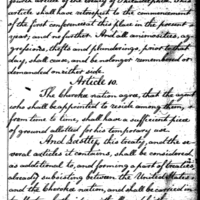 fourth article of the treaty of Philadelphia. This
article shall have retrospect to the commencement
of the first conferences at this place in the present
year, and no further. And all animosities, ag-
gressions, thefts and plunderings, prior to that
day, shall cease, and be no longer remembered or
demanded on either side.
Article 10.
The Cherokee nation agree, that the agent
who shall be appointed to reside among them,
from time to time, shall have a sufficient piece
of ground allotted for his temporary use.
And lastly, this treaty, and the se-
veral articles it contains, shall be considered
as additional to, and forming a part of treaties
already subsisting between the United States
and the Cherokee nation, and shall be carried in